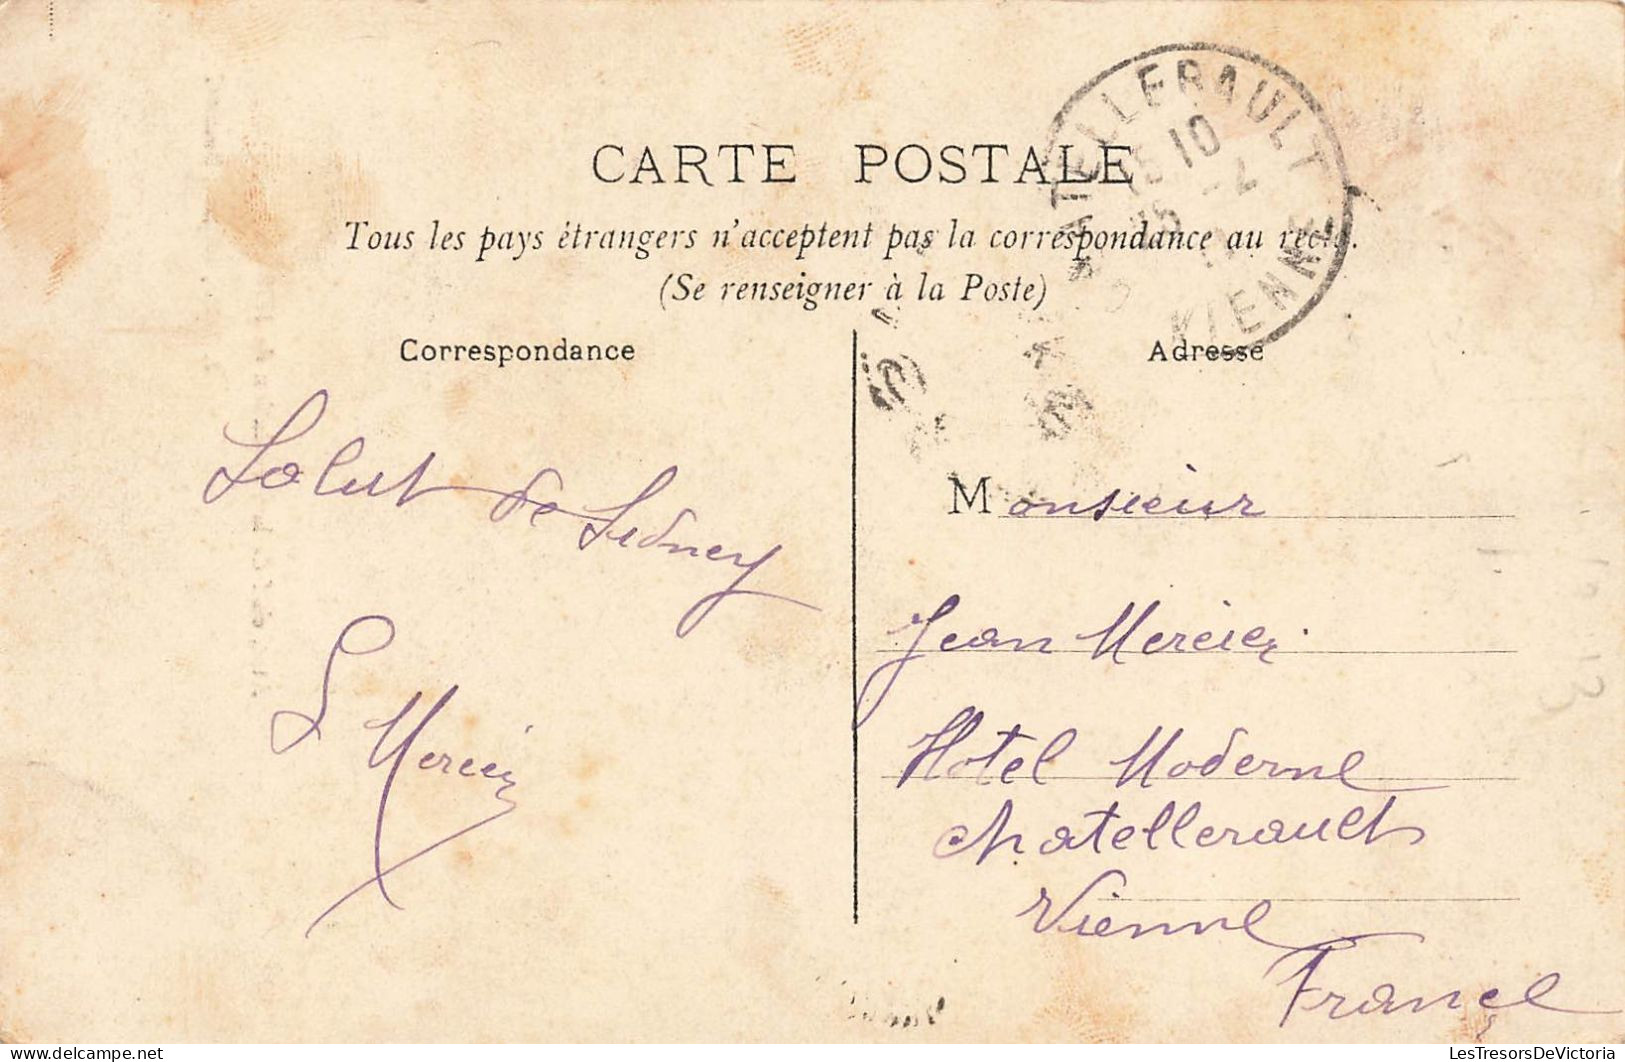 CARTE POSTALE
Tous les pays étrangers n'acceptent pas la correspondance au recto.
(Se renseigner à la Poste)
CHATELLERAULT
15 10
VIENNE
Correspondance
Adresse
Salut de Sidney
S Mercier
Monsieur
Jean Mercier
Hotel Moderne
Chatellerault
Vienne
France
delcampe.net
LesTresorsDeVictoria